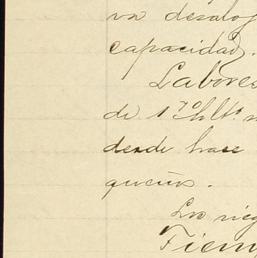 va desaloj
capacidad.
Labores
de 170 hlts
desde hace
queños.
Los rieg
Tiem